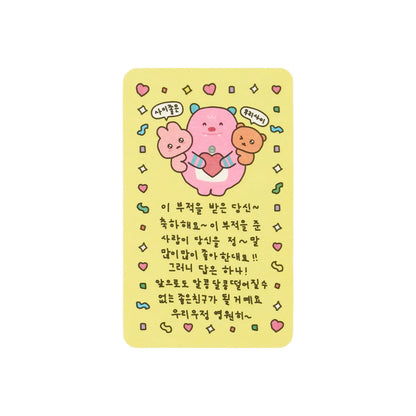 사이좋은
우리사이
이 부적을 받은 당신~
축하해요~ 이 부적을 준
사람이 당신을 정~말
많이많이 좋아한대요!!
그러니 답은 하나!
앞으로도 알콩달콩떨어질수
없는 좋은친구가 될 거예요
우리우정 영원히~